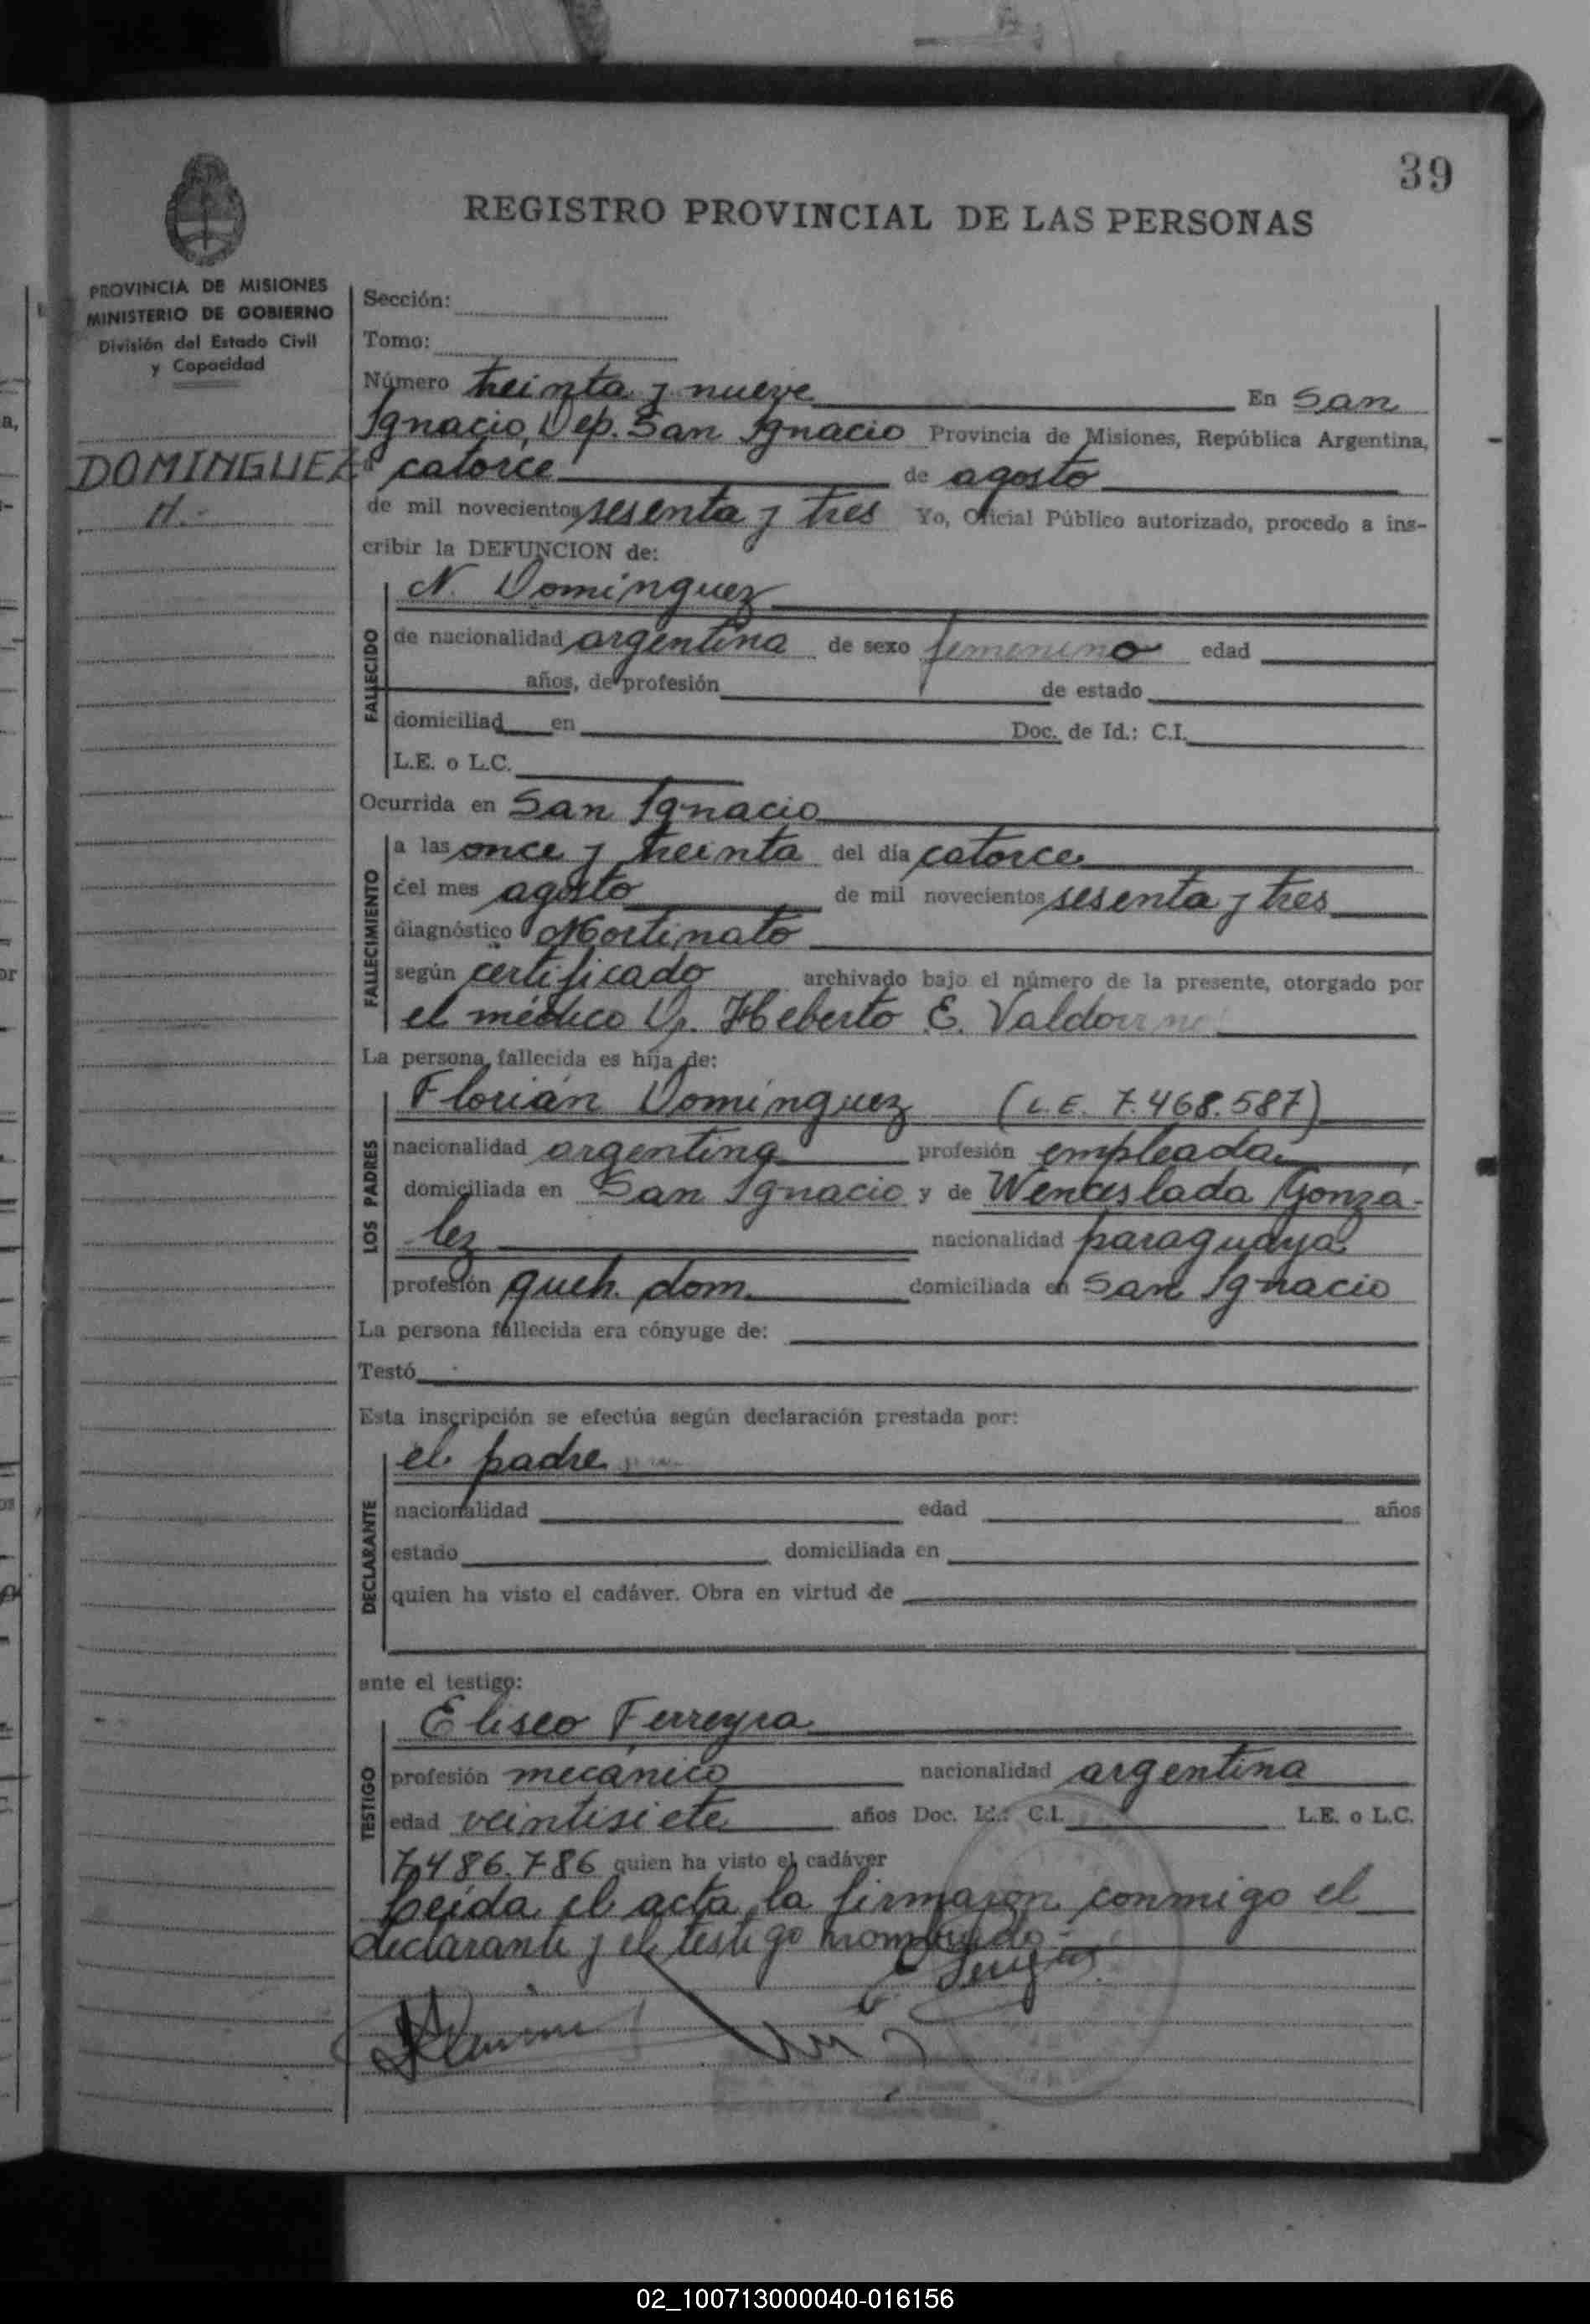 39
REGISTRO PROVINCIAL DE LAS PERSONAS
PROVINCIA DE MISIONES
MINISTERIO DE GOBIERNO
División del Estado Civil
y Capacidad
DOMINGUEZ
N.-
Sección:
Tomo:
Número treinta y nueve En San
Ignacio, Dep. San Ignacio Provincia de Misiones, República Argentina,
a catorce de agosto
de mil novecientos sesenta y tres Yo, Oficial Público autorizado, procedo a ins-
cribir la DEFUNCION de:
FALLECIDO
N. Domínguez
de nacionalidad argentina de sexo femenino edad
años, de profesión de estado
domiciliad en Doc. de Id.: C.I.
L.E. o L.C.
Ocurrida en San Ignacio
FALLECIMIENTO
a las once y treinta del día catorce
del mes agosto de mil novecientos sesenta y tres
diagnóstico Mortinato
según certificado archivado bajo el número de la presente, otorgado por
el médico Dr. Heberto E.
La persona fallecida es hija de:
LOS PADRES
Florián Domínguez (L.E. 7.468.587)
nacionalidad argentina profesión empleada
domiciliada en San Ignacio y de Wenceslada Gonzá-
lez nacionalidad paraguaya
profesión queh. dom. domiciliada en San Ignacio
La persona fallecida era cónyuge de:
Testó
Esta inscripción se efectúa según declaración prestada por:
DECLARANTE
el padre
nacionalidad edad años
estado domiciliada en
quien ha visto el cadáver. Obra en virtud de
ante el testigo:
TESTIGO
Eliseo Ferreyra
profesión mecánico nacionalidad argentina
edad veintisiete años Doc. Id.: C.I. L.E. o L.C.
7.486.786 quien ha visto el cadáver
Leída el acta, la firmaron conmigo el
declarante y el testigo nombrado.-
02_100713000040-016156